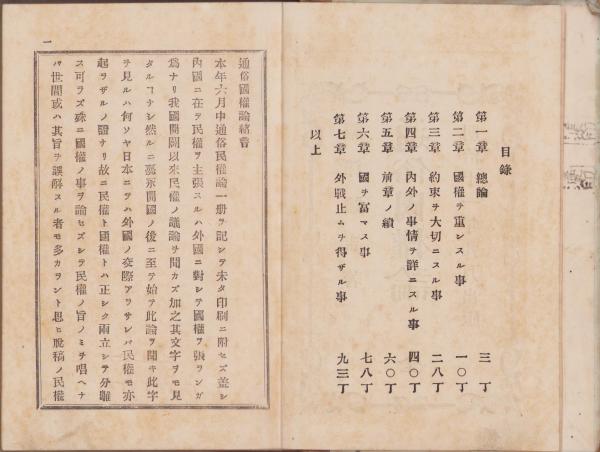 目錄
第一章 總論 三丁
第二章 國權ヲ重ンスル事 一〇丁
第三章 約束ヲ大切ニスル事 二八丁
第四章 內外ノ事情ヲ詳ニスル事 四〇丁
第五章 前章ノ續 六〇丁
第六章 國ヲ富マス事 七八丁
第七章 外戰止ムヲ得ザル事 九三丁
以上
一
通俗國權論緒言
本年六月中通俗民權論一册ヲ記シテ未タ印刷ニ附セズ蓋シ
內國ニ在テ民權ヲ主張スルハ外國ニ對シテ國權ヲ張ランガ
爲ナリ我國開闢以來民權ノ議論ヲ聞カズ加之其文字ヲモ見
タルヿナシ然ルニ嘉永開國ノ後ニ至テ始テ此論ヲ聞キ此字
ヲ見ルハ何ソヤ日本ニヲハ外國ノ交際アラサレバ民權モ亦
起ラザルノ證ナリ故ニ民權ト國權トハ正シク兩立シテ分離
ス可ラズ殊ニ國權ノ事ヲ論セズシテ民權ノ旨ノミヲ唱ヘナ
バ世間或ハ其旨ヲ誤解スル者モ多カラント思ヒ脫稿ノ民權